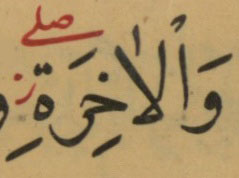 صلى
وَالْاٰخِرَةِ ز